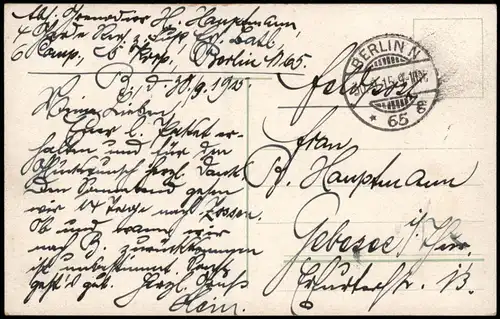 Abs. Grenadier H. Hauptmann,
4 Garde Rgt. z. Fuß Ers. Batl.
6 Comp. Korp. Berlin N.65.
B. d. 30/9.1915
Meine Lieben!
Euer l. Paket er-
halten und für den
Glückwunsch herzl. Dank
Den Sonnabend gehen
wir 14 Tage nach Zossen.
Ob und wann wir
nach B. zurückkommen
ist unbestimmt. Sonst
geht's gut. Herzl. Gruß
Hein.
BERLIN N
65
Feldpost
Frau
B. Hauptmann
Gebesee i/Thür.
Erfurterstr. 13.